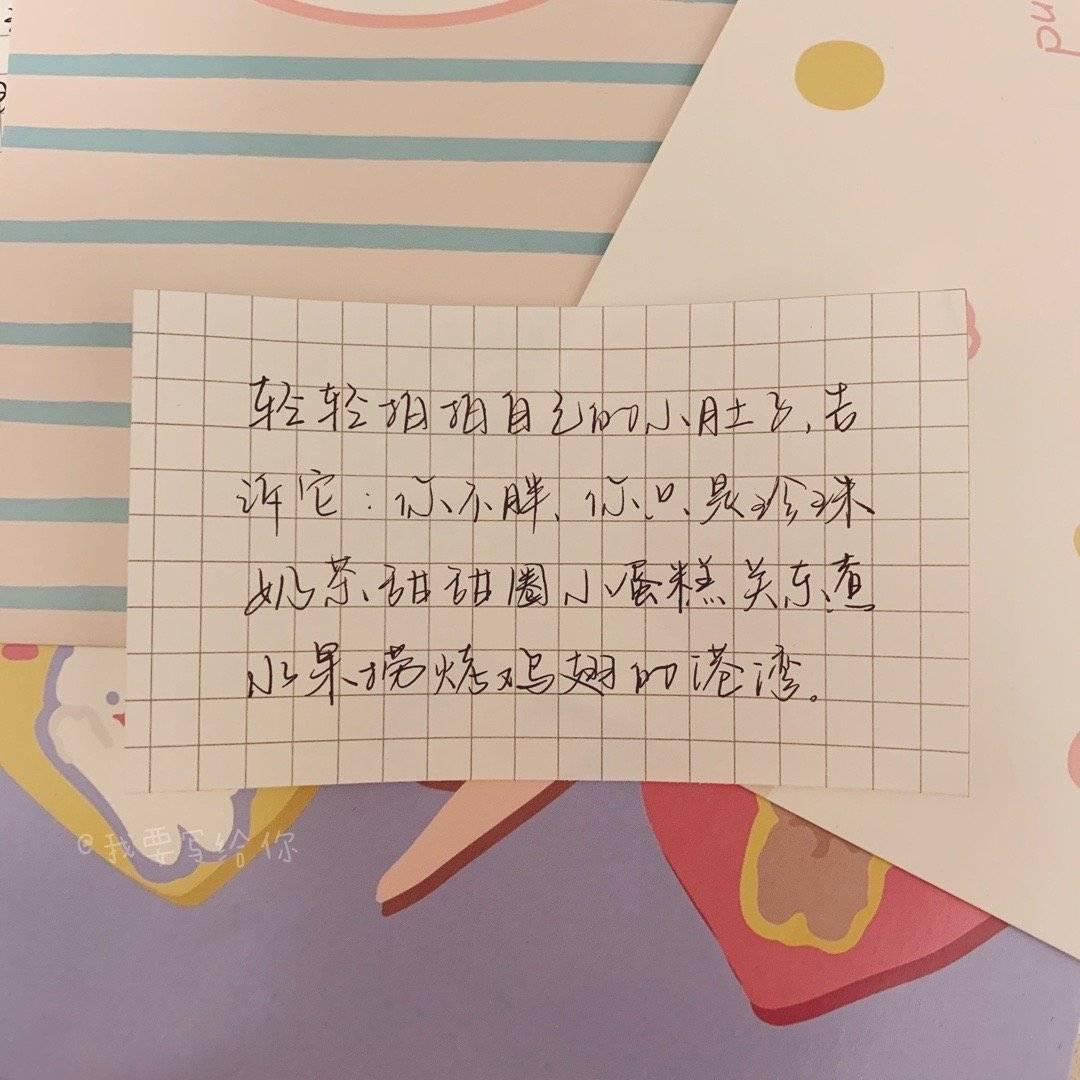 轻轻拍拍自己的小肚子,告
诉它:你不胖,你只是珍珠
奶茶甜甜圈小蛋糕关东煮
水果捞烤鸡翅的港湾。
@我要写给你